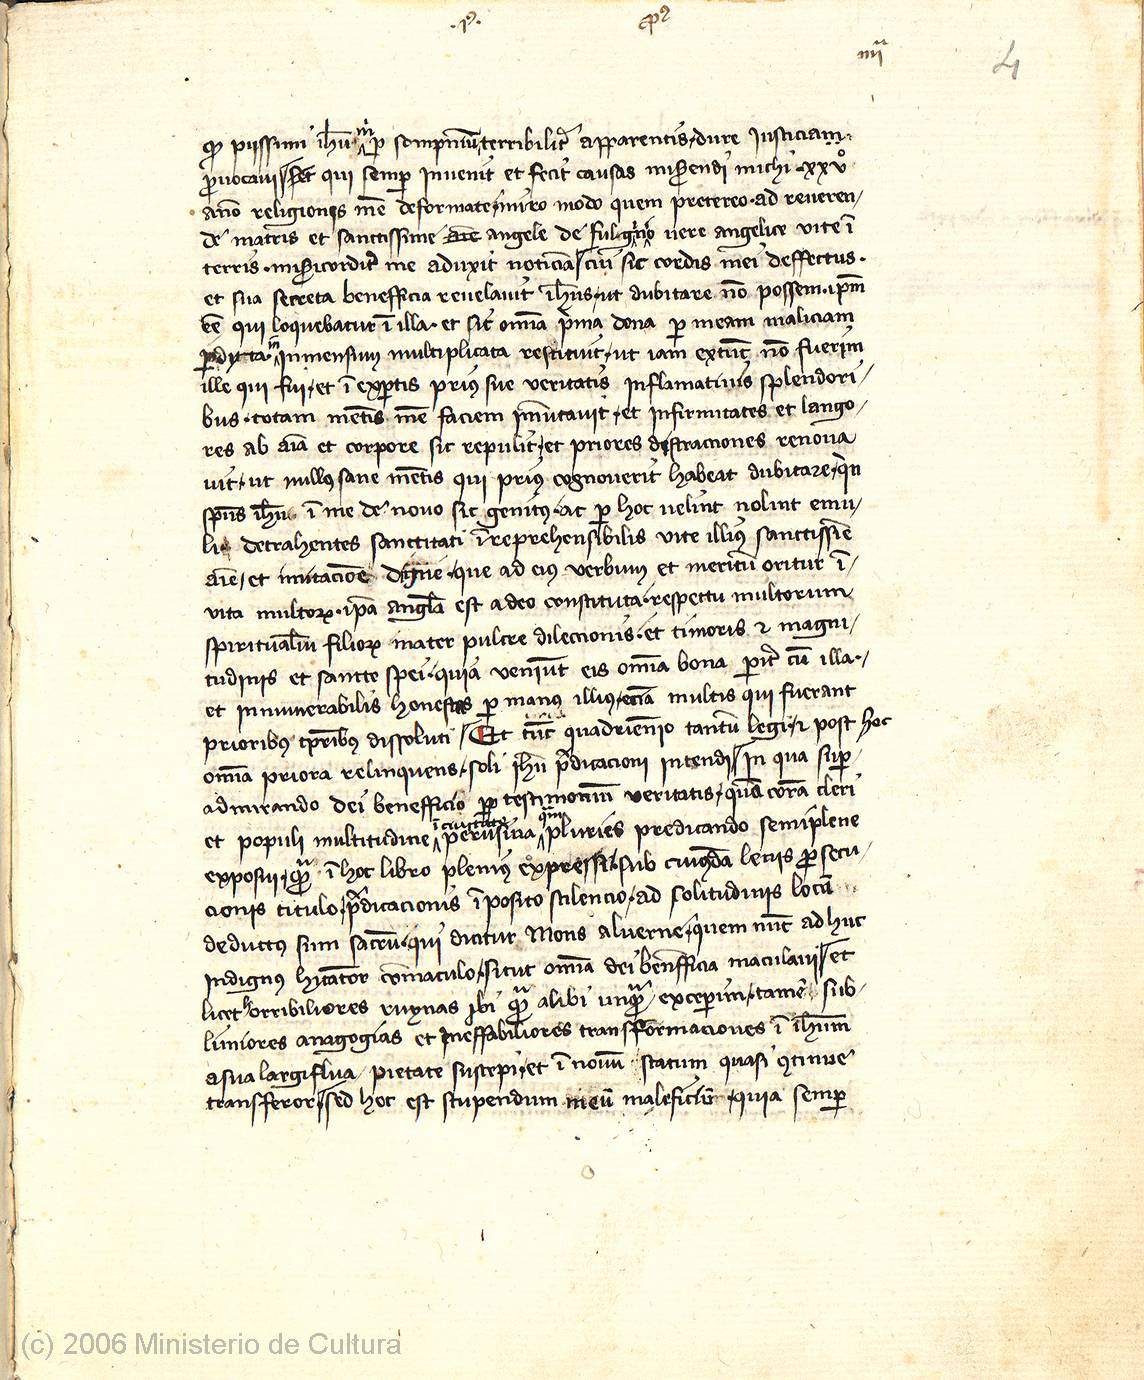 .p⁹. ep⁹
iiij 4
ꝙ pijssimi ih̄u m̄ ꝑ sompniuȝ terribilit̉ apparentis dure Justiciam
ꝓuocaui sed qui semꝑ Inuenit et fecit causas mis̉endi michi · xxvº
an̄o religionis mee deformate miro modo quem pretereo · ad reueren/
de matris et sanctissime aīe angele de fulg̉nio uere angelice vite ī
terris · mis̉icordit̉ me aduxit noticiā cui sic cordis mei deffectus ·
et sua secreta benefficia reuelauit ih̄us ut dubitare nō possem · ip̄m
eē qui loquebatur ī illa · et sic om̄ia p̉ma dona ꝑ meam maliciam
ꝑdita in Inmensuȝ multiplicata restituit ut iam extūc nō fuerim
ille qui fui et ī exꝑtis prius sue veritatis Inflamatiuis splendori/
bus · totam mētis mee faciem īmutauit · et Infirmitates et lango/
res ab aīa et corpore sic repulit et priores distracciones renoua
uit ut nullus sane mētis qui prius cognouerit habeat dubitare qn̄
sp̄us ih̄u · ī me de nouo sic genitus · ac ꝑ hoc uelint nolint emu/
li detrahentes sanctitati īreprehensibilis vite illius sanctissīe
aīe et mutacione digne · que ad eius verbum et meritū oritur ī/
vita multoꝝ · ip̄a angl̄a est adeo constituta · respectu multorum
spiritualiū filioꝝ mater pulcre dileccionis · et timoris ⁊ magni/
tudinis et sancte spei · quia veniūt eis om̄ia bona ꝑit̉ cū illa · /
et innumerabilis honestas ꝑ manus illius eciā multis qui fuerant
prioribus tp̄ribus dissoluti Et tūc quadrieñio tantū legi ⁊ post hoc
om̄ia priora relinquens soli ih̄u p̄dicacioni intendi In qua suꝑ/
admirando dei benefficio ꝑ testimoniū veritatis quā corā cleri
et populi multitudine ī ciuitate perusina qm̄ pluries predicando semiplene
exposui · ī hoc libro plenius expressi sub cuiusdā leuis ꝑsecu/
cionis titulo p̄dicacionis īposito silencio ad solitudinis locū
deductus sum sacrū qui dicitur Mons aluerne quem nūc adhuc
Indignus hitator cōmaculo sicut om̄ia dei benefficia maculaui et
licet horribiliores ruynas ibi alibi exceperim tamē sub/
limiores anagogias et Ineffabiliores transformaciones ī ih̄um
a sua largiflua pietate suscepi et ī nouū statum quasi ꝯtinue
transferor sed hoc est stupendum meū maleficiū quia semꝑ
(c) 2006 Ministerio de Cultura